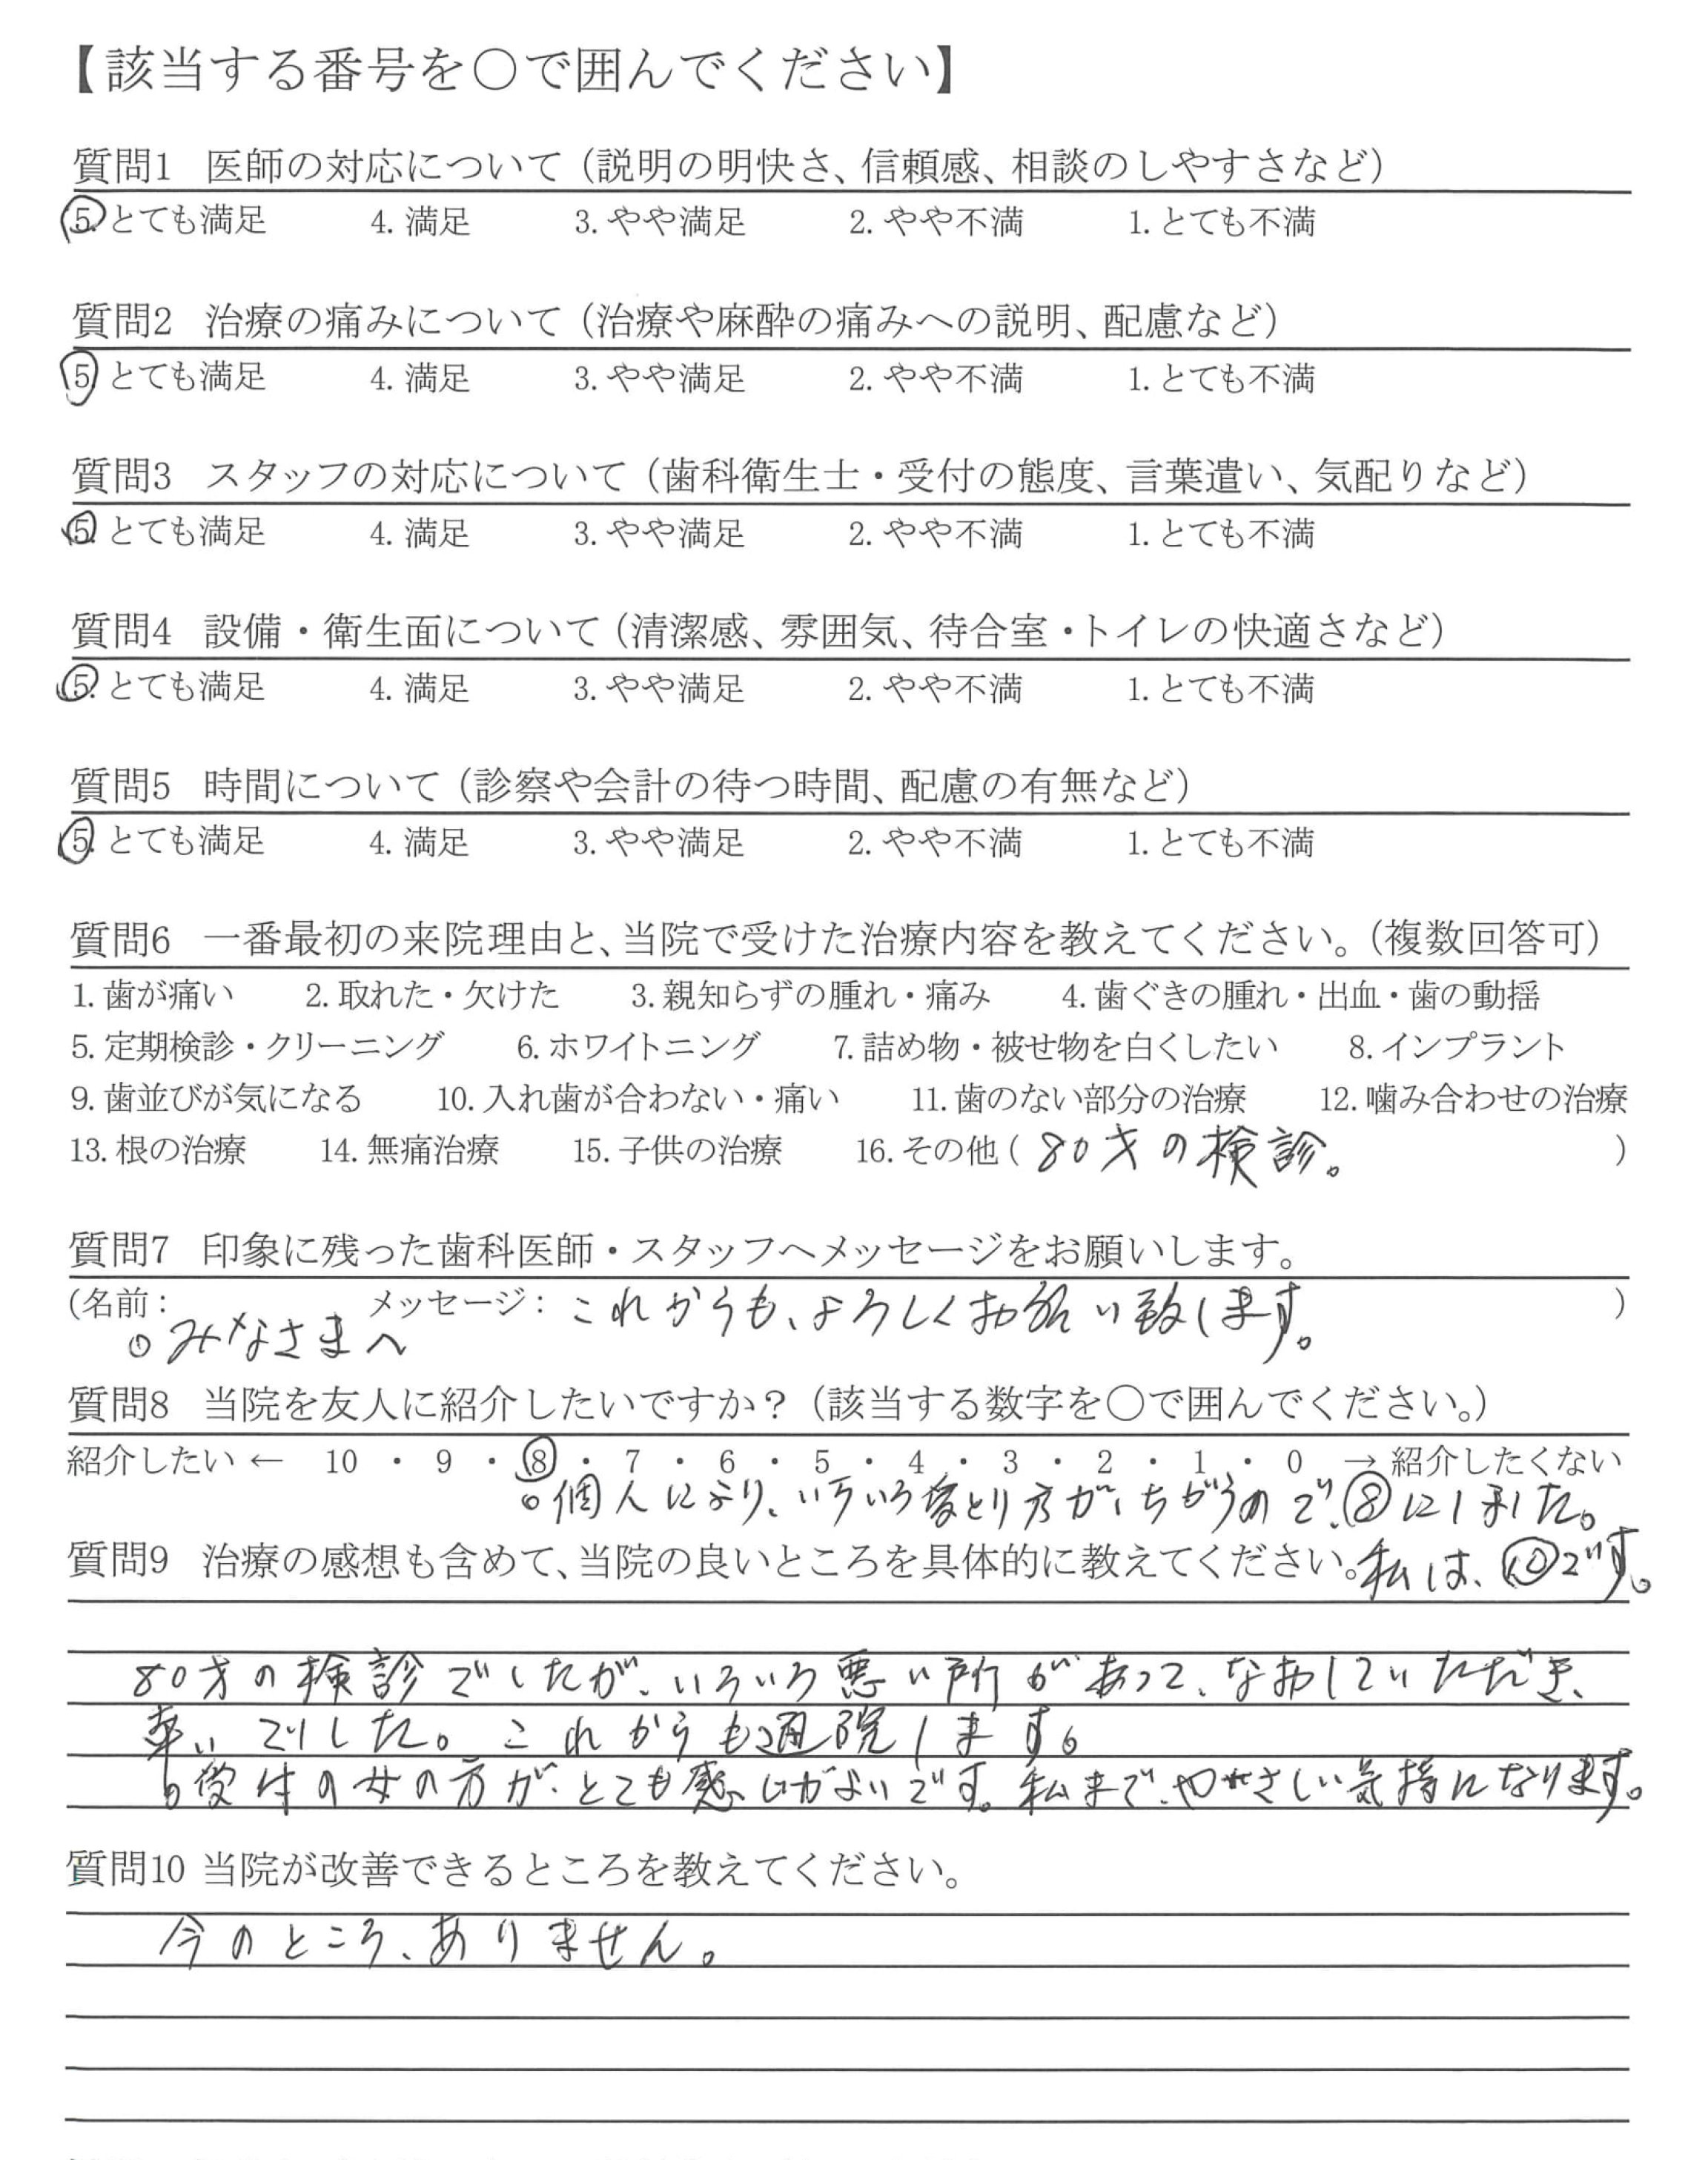 【該当する番号を〇で囲んでください】
質問1 医師の対応について（説明の明快さ、信頼感、相談のしやすさなど）
5. とても満足 4. 満足 3. やや満足 2. やや不満 1. とても不満
質問2 治療の痛みについて（治療や麻酔の痛みへの説明、配慮など）
5. とても満足 4. 満足 3. やや満足 2. やや不満 1. とても不満
質問3 スタッフの対応について（歯科衛生士・受付の態度、言葉遣い、気配りなど）
5. とても満足 4. 満足 3. やや満足 2. やや不満 1. とても不満
質問4 設備・衛生面について（清潔感、雰囲気、待合室・トイレの快適さなど）
5. とても満足 4. 満足 3. やや満足 2. やや不満 1. とても不満
質問5 時間について（診察や会計の待つ時間、配慮の有無など）
5. とても満足 4. 満足 3. やや満足 2. やや不満 1. とても不満
質問6 一番最初の来院理由と、当院で受けた治療内容を教えてください。（複数回答可）
1. 歯が痛い 2. 取れた・欠けた 3. 親知らずの腫れ・痛み 4. 歯ぐきの腫れ・出血・歯の動揺
5. 定期検診・クリーニング 6. ホワイトニング 7. 詰め物・被せ物を白くしたい 8. インプラント
9. 歯並びが気になる 10. 入れ歯が合わない・痛い 11. 歯のない部分の治療 12. 噛み合わせの治療
13. 根の治療 14. 無痛治療 15. 子供の治療 16. その他（80才の検診。）
質問7 印象に残った歯科医師・スタッフへメッセージをお願いします。
（名前： メッセージ：これからも、よろしくお願い致します。）
○みなさまへ
質問8 当院を友人に紹介したいですか？（該当する数字を〇で囲んでください。）
紹介したい ← 10 ・ 9 ・ ⑧ ・ 7 ・ 6 ・ 5 ・ 4 ・ 3 ・ 2 ・ 1 ・ 0 → 紹介したくない
○個人により、いろいろ受とり方が、ちがうので、⑧にしました。
質問9 治療の感想も含めて、当院の良いところを具体的に教えてください。私は、⑩です。
80才の検診でしたが、いろいろ悪い所があって、なおしていただき、
幸いでした。これからも通院します。
○受付の女の方が、とても感じがよいです。私まで、やさしい気持になります。
質問10 当院が改善できるところを教えてください。
今のところ、ありません。